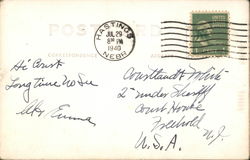 POST CARD
CORRESPONDENCE
HASTINGS
JUL 29
8 30 PM
1940
NEBR.
Hi Court
Long time No See
Emma
Courtlandt White
Under Sheriff
Court House
Freehold
N.J.
U.S.A.